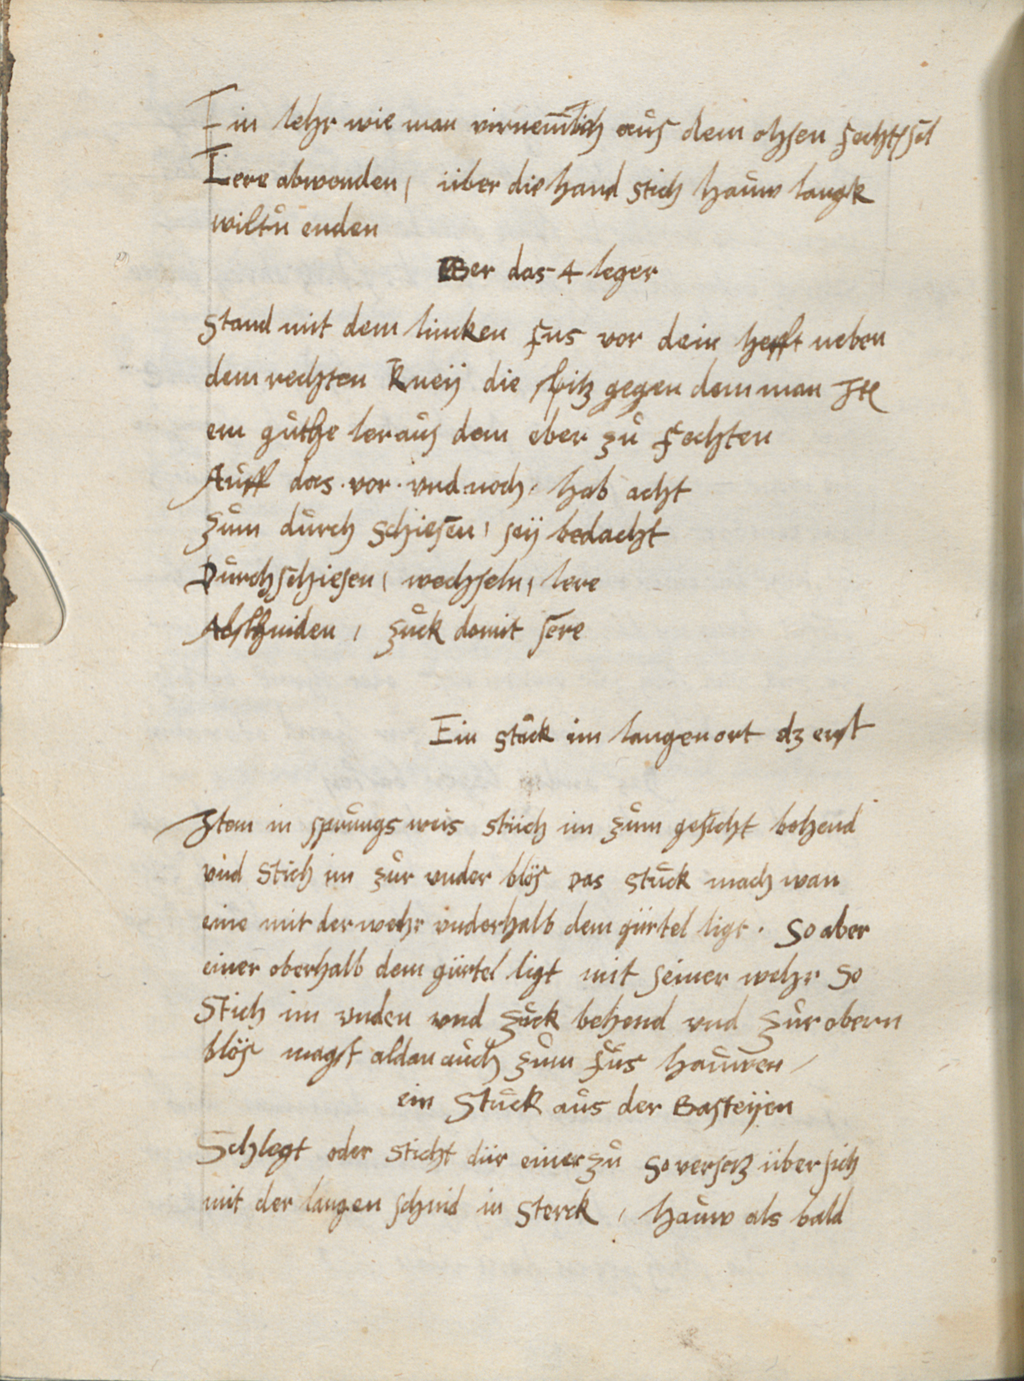 Ein lehr wie man virnemlich aůs dem ohsen fechten sol
Lere abwenden, über die hand stich haůw langk
wiltů enden
Eber das 4 leger
Stand mit dem lincken fus vor dein hefft neben
dem rechten kneÿ die spitz gegen dem man Ist
ein gůthe ler aůs dem eber zů fechten
Aůff das · vor · vnd noch · hab acht
Zům důrch schiesen, seÿ bedacht
Důrchschiesen, wechseln, lere
Abschniden, zůck domit sere
Ein stůck im langenort dz erst
Item in sprůngs weis stiich im zům gesicht behend
vnd stich im zůr vnder blös Das stůck mach wan
eine mit der wehr vnderhalb dem gürtel ligt · So aber
einer oberhalb dem gürtel ligt mit seiner wehr So
Stich im vnden vnd zůck behend vnd zůr obern
blös magst aldan aůch zům fůs haůwen /
ein Stůck aůs der Basteÿen
Schlegt oder sticht dür einer zů So versetz über sich
mit der langen schnid in sterck, haůw als bald